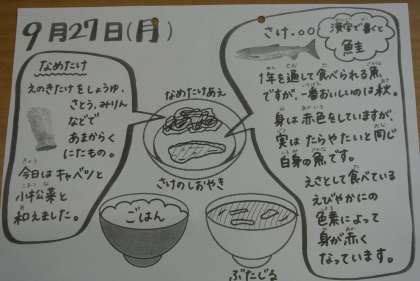 9月27日(月)
なめたけ
えのきたけをしょうゆ、
さとう、みりん
などで
あまからく
にたもの。
今日はキャベツと
小松菜と
和えました。
なめたけあえ
さけのしおやき
ごはん
ぶたじる
さけ。。。
漢字で書くと
鮭
1年を通して食べられる魚
ですが、一番おいしいのは秋。
身は赤色をしていますが、
実はたらやたいと同じ
白身の魚です。
えさとして食べている
えびやかにの
色素によって
身が赤く
なっています。